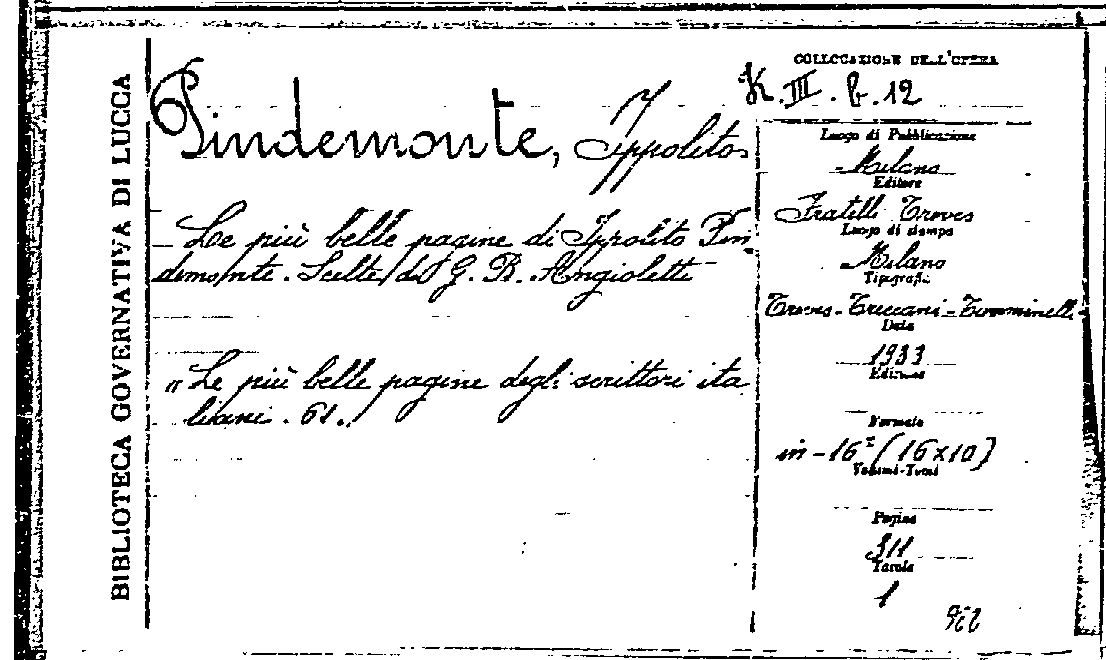 BIBLIOTECA GOVERNATIVA DI LUCCA
Pindemonte, Ippolito
Le più belle pagine di Ippolito Pin
demonte. Scelte da G. B. Angioletti
"Le più belle pagine degli scrittori ita
liani. 61.
COLLOCAZIONE DELL'OPERA
K. III. b. 12
Luogo di Pubblicazione
Milano
Editore
Fratelli Treves
Luogo di stampa
Milano
Tipografia
Treves-Treccani-Tumminelli
Data
1933
Edizione
Formato
in-16º (16x10)
Volumi-Tomi
Pagine
311
Tavole
1